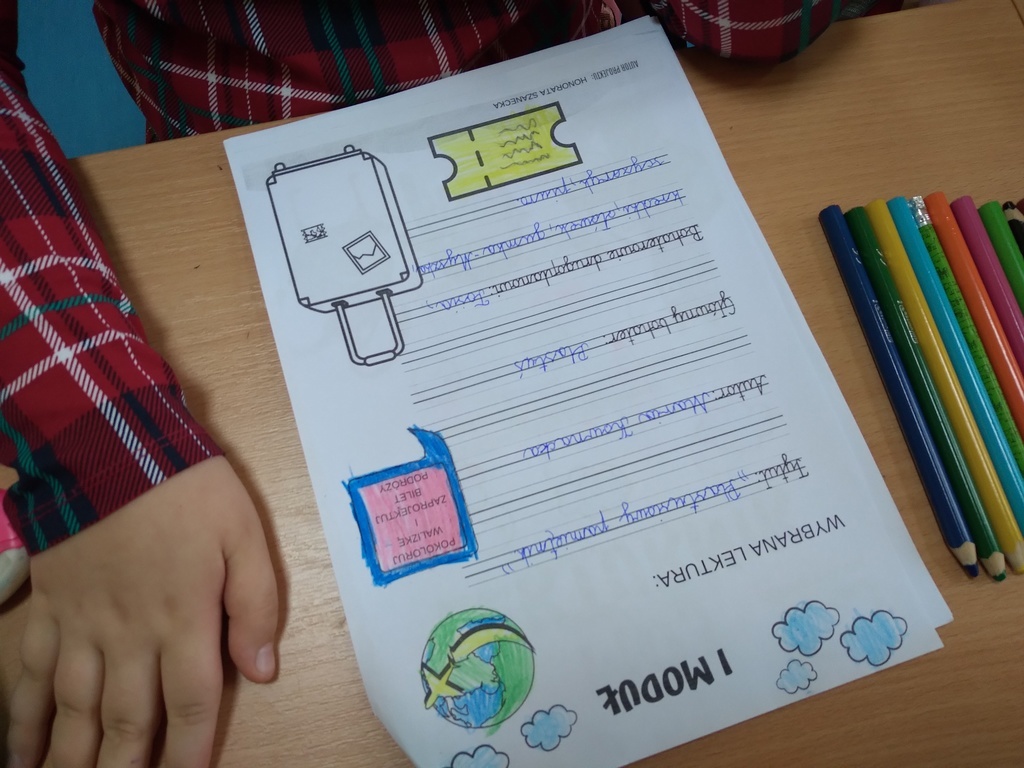 I MODUŁ
WYBRANA LEKTURA:
Tytuł: „Plastusiowy pamiętnik"
Autor: Maria Kownacka
Główny bohater: Plastuś
Bohaterowie drugoplanowi: Tosia,
kredki, ołówek, gumka- Myszka
pióro.
POKOLORUJ
WALIZKĘ
I
ZAPROJEKTUJ
BILET
PODRÓŻY
AUTOR PROJEKTU: HONORATA SZANECKA